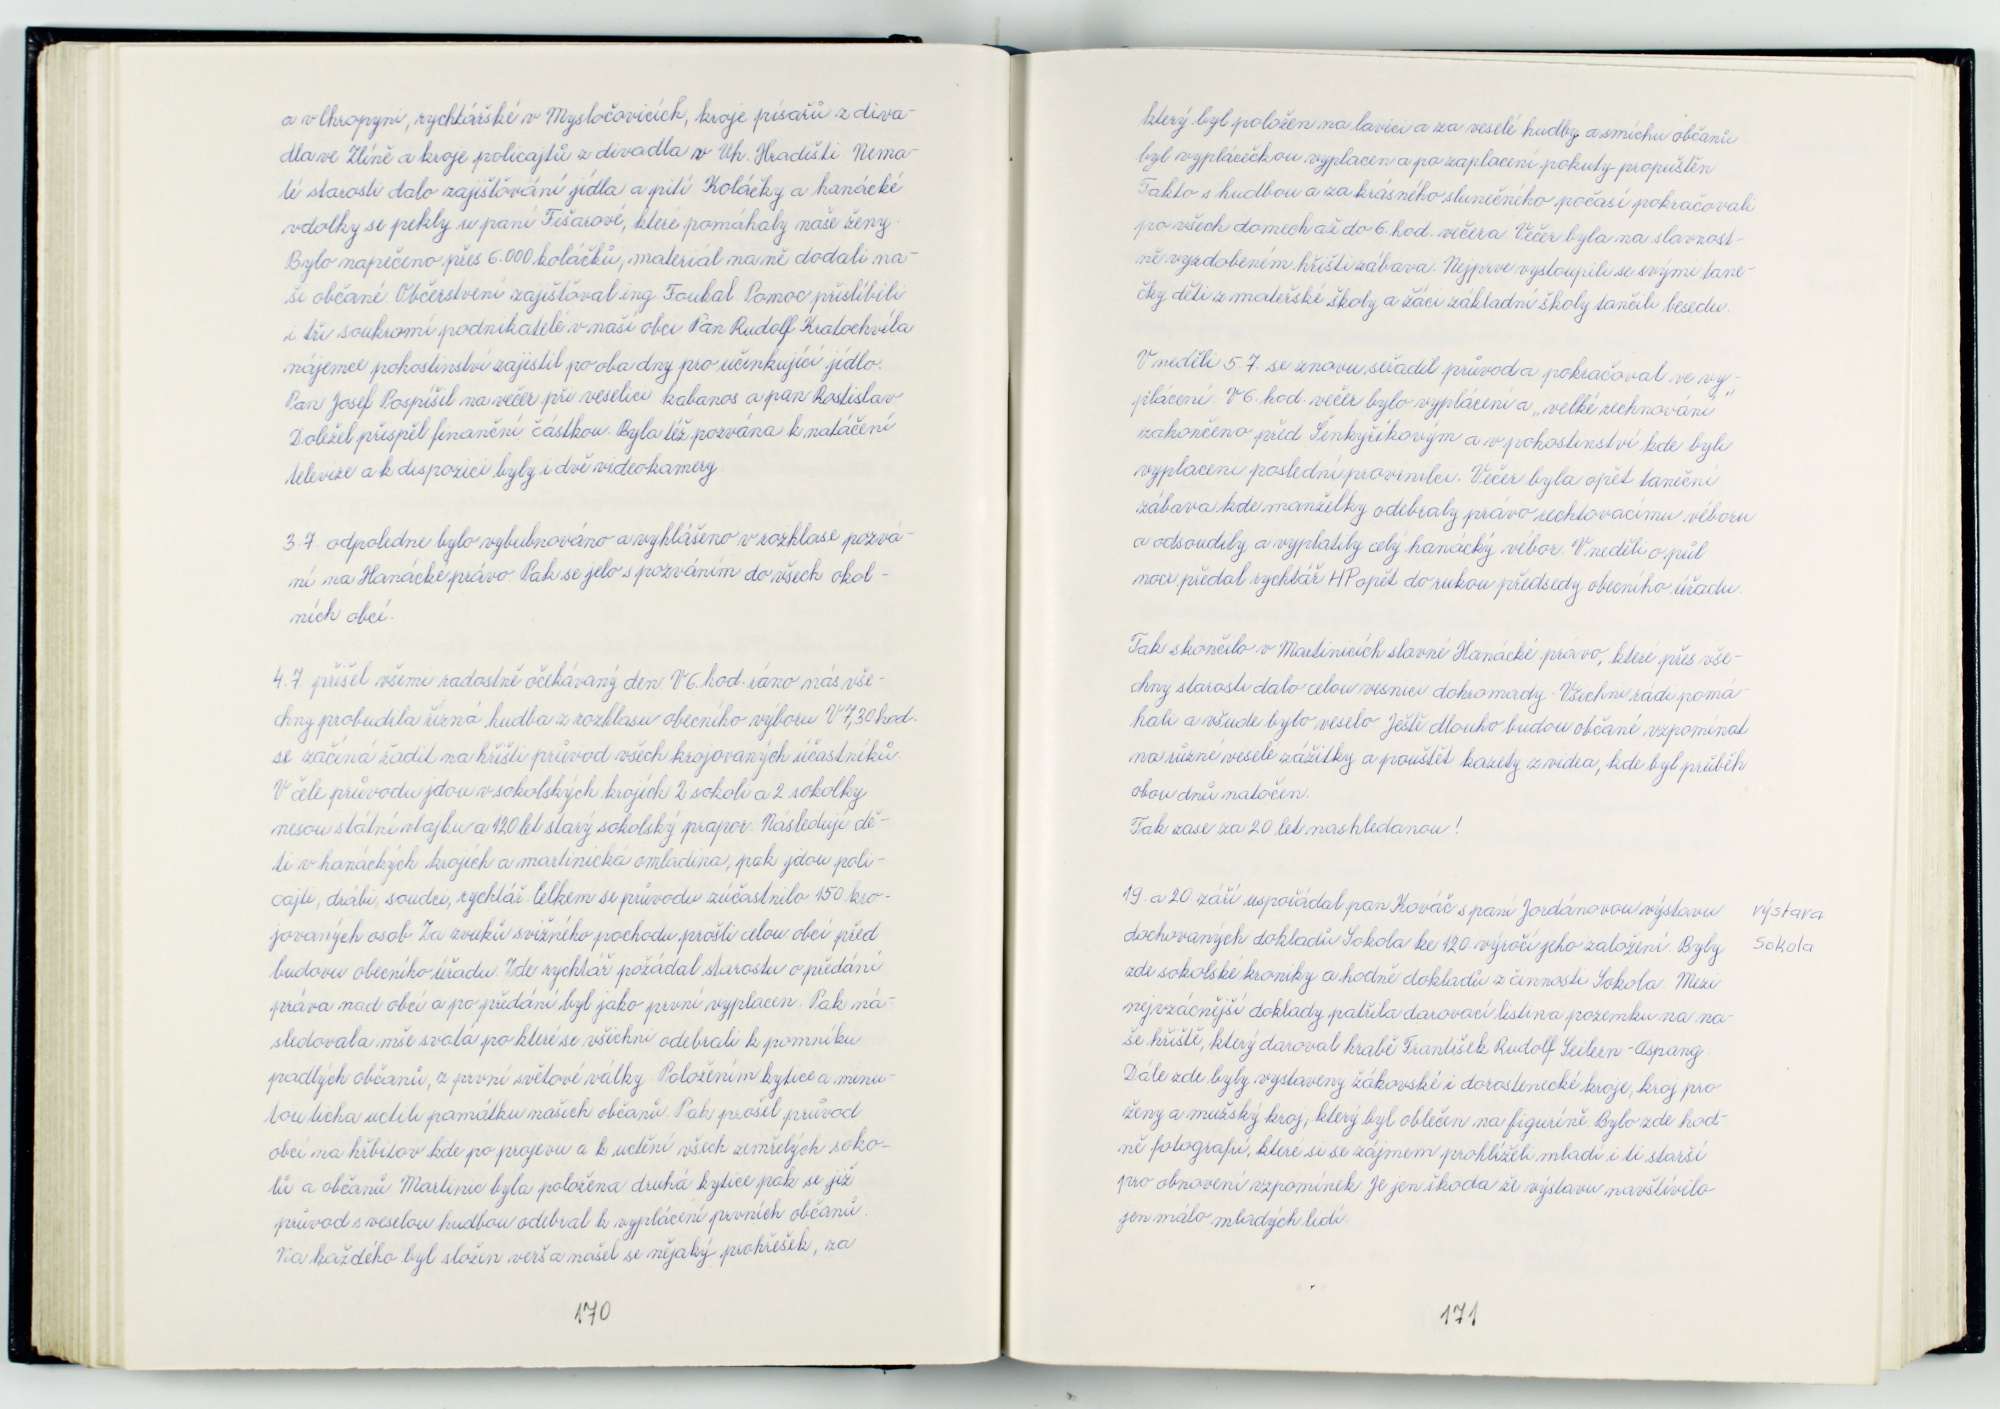 a v Chropyni, rychtářské v Mysločovicích, kroje písařů z diva-
dla ve Zlíně a kroje policajtů z divadla v Uh. Hradišti. Nema-
lé starosti dalo zajišťování jídla a pití. Koláčky a hanácké
vdolky se pekly u paní Fišarové, které pomáhaly naše ženy.
Bylo napečeno přes 6.000 koláčků, materiál na ně dodali na-
ši občané. Občerstvení zajišťoval ing. Foukal. Pomoc přislíbili
i tři soukromí podnikatelé v naší obci. Pan Rudolf Kratochvíla
nájemce pohostinství zajistil po oba dny pro účinkující jídlo.
Pan Josef Pospíšil na večer při veselici kabanos a pan Rostislav
Doležel přispěl finanční částkou. Byla též pozvána k natáčení
televize a k dispozici byly i dvě videokamery.
3.7. odpoledne bylo vybubnováno a vyhlášeno v rozhlase pozvá-
ní na Hanácké právo. Pak se jelo s pozváním do všech okol-
ních obcí.
4.7. přišel všemi radostně očekávaný den. V 6. hod. ráno nás vše-
chny probudila řízná hudba z rozhlasu obecního výboru. V 7,30 hod.
se začíná řadit na hřišti průvod všech krojovaných účastníků.
V čele průvodu jdou v sokolských krojích 2 sokoli a 2 sokolky
nesou státní vlajku a 120 let starý sokolský prapor. Následují dě-
ti v hanáckých krojích a martinická omladina, pak jdou poli-
cajti, drábi, soudci, rychtář. Celkem se průvodu zúčastnilo 150 kro-
jovaných osob. Za zvuků svižného pochodu prošli celou obcí před
budovu obecního úřadu. Zde rychtář požádal starostu o předání
práva nad obcí a po předání byl jako první vyplacen. Pak ná-
sledovala mše svatá po které se všichni odebrali k pomníku
padlých občanů, z první světové války. Položením kytice a minu-
tou ticha uctili památku našich občanů. Pak prošel průvod
obcí na hřbitov kde po projevu a k uctění všech zemřelých soko-
lů a občanů Martinic byla položena druhá kytice pak se již
průvod s veselou hudbou odebral k vyplácení prvních občanů.
Na každého byl složen verš a našel se nějaký prohřešek, za
170
který byl položen na lavici a za veselé hudby a smíchu občanů
byl vyplácačkou vyplacen a po zaplacení pokuty propuštěn.
Takto s hudbou a za krásného slunečného počasí pokračovali
po všech domech až do 6. hod. večera. Večer byla na slavnost-
ně vyzdobeném hřišti zábava. Nejprve vystoupili se svými tane-
čky děti z mateřské školy a žáci základní školy tančili besedu.
V neděli 5.7. se znovu seřadil průvod a pokračoval ve vy-
plácení. V 6. hod. večer bylo vyplácení a „velké rechnování"
zakončeno před Šenkyříkovým a v pohostinství kde byli
vyplaceni poslední provinilci. Večer byla opět taneční
zábava kde manželky odebraly právo rechtovacímu véboru
a odsoudily a vyplatily celý hanácký vébor. V neděli o půl
noci předal rychtář HP opět do rukou předsedy obecního úřadu.
Tak skončilo v Martinicích slavné Hanácké právo, které přes vše-
chny starosti dalo celou vesnici dohromady. Všichni rádi pomá-
hali a všude bylo veselo. Ještě dlouho budou občané vzpomínat
na různé veselé zážitky a pouštět kazety z videa, kde byl průběh
obou dnů natočen.
Tak zase za 20 let nashledanou!
19. a 20. září uspořádal pan Kováč s paní Jordánovou výstavu
dochovaných dokladů Sokola ke 120. výročí jeho založení. Byly
zde sokolské kroniky a hodně dokladů z činnosti Sokola. Mezi
nejvzácnější doklady patřila darovací listina pozemku na na-
še hřiště, který daroval hrabě František Rudolf Seilern-Aspang.
Dále zde byly vystaveny žákovské i dorostenecké kroje, kroj pro
ženy a mužský kroj, který byl oblečen na figuríně. Bylo zde hod-
ně fotografií, které si se zájmem prohlíželi mladí i ti starší
pro obnovení vzpomínek. Je jen škoda že výstavu navštívilo
jen málo mladých lidí.
výstava
Sokola
171